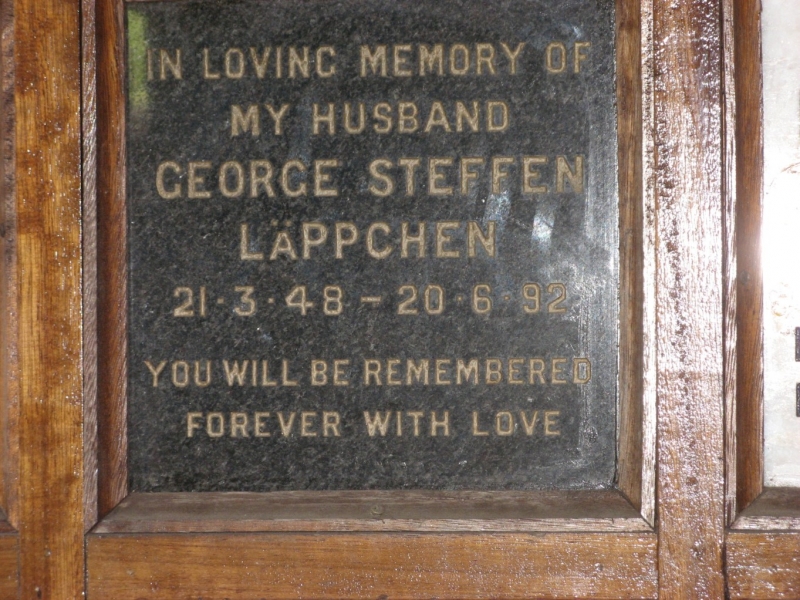 IN LOVING MEMORY OF
MY HUSBAND
GEORGE STEFFEN
LÄPPCHEN
21·3·48 – 20·6·92
YOU WILL BE REMEMBERED
FOREVER WITH LOVE